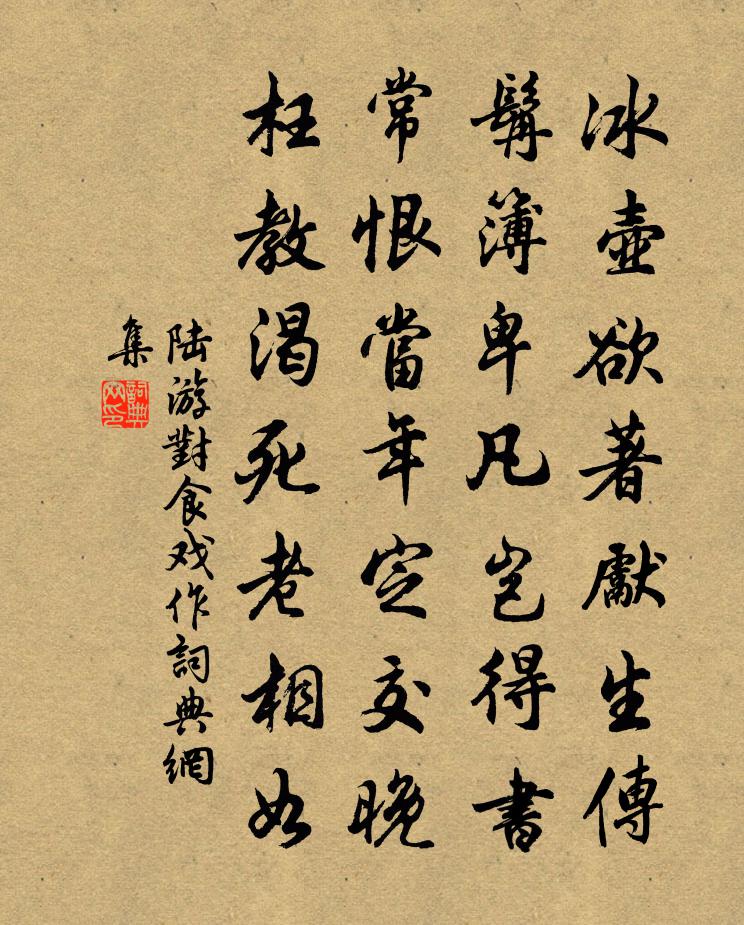 冰壺欲著獻生傳
髯簿卑凡豈得書
常恨當年定交晚
枉教渴死老相如
陆游對食戏作詞典網
集
詞典
网印